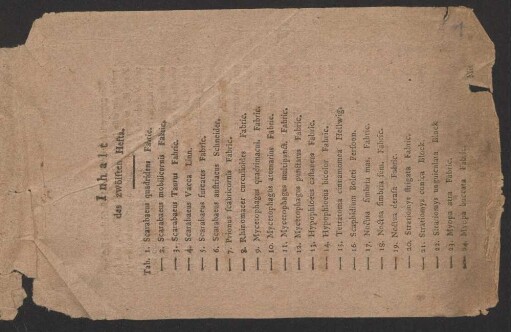 Inhalt
des zwölften Hefts.
Tab. 1. Scarabaeus quadridens Fabric.
— 2. Scarabaeus mobilicornis Fabric.
— 3. Scarabaeus Taurus Fabric.
— 4. Scarabaeus Vacca Linn.
— 5. Scarabaeus Fabric.
— 6. Scarabaeus austriacus Schneider.
— 7. Prionus scabricornis Fabric.
— 8. Rhinomacer curculioides Fabric.
— 9. Mycetophagus quadrimacul. Fabric.
— 10. Mycetophagus atomarius Fabric.
— 11. Mycetophagus multipunct. Fabric.
— 12. Mycetophagus Fabric.
— 13. Hypophloeus castaneus Fabric.
— 14. Hypophloeus bicolor Fabric.
— 15. Tetratoma cinnamomea Hellwig.
— 16. Scaphidium Boleti Persoon.
— 17. Noctua fimbria mas. Fabric.
— 18. Noctua fimbria fem. Fabric.
— 19. Noctua derasa Fabric.
— 20. Stratiomys Fabric.
— 21. Stratiomys Block.
— 22. Stratiomys Block
— 23. Myopa atra Fabric.
— 24. Myopa buccata Fabric.